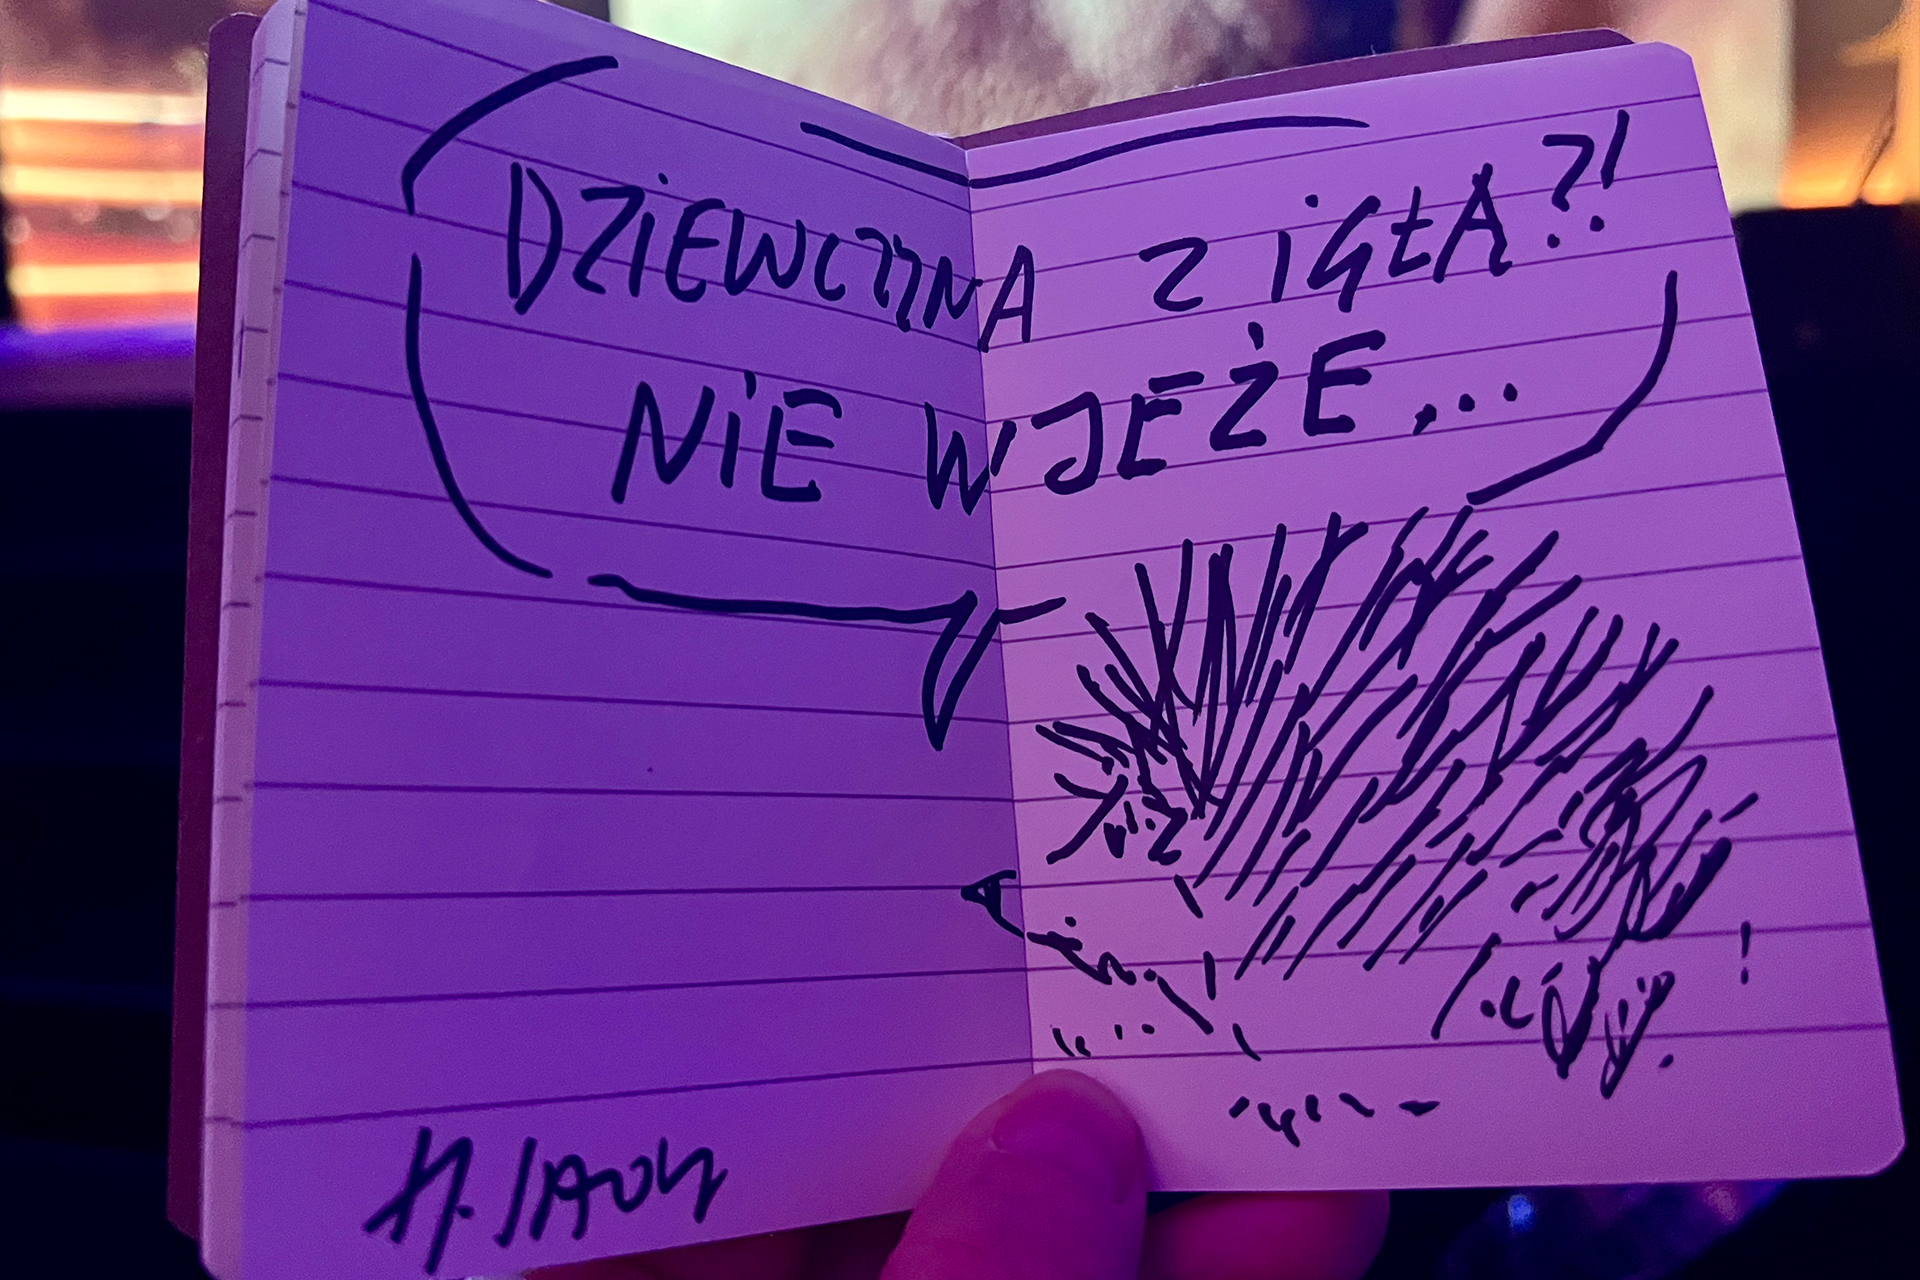 DZIEWCZYNA Z IGŁĄ?!
NIE WJEŻE...